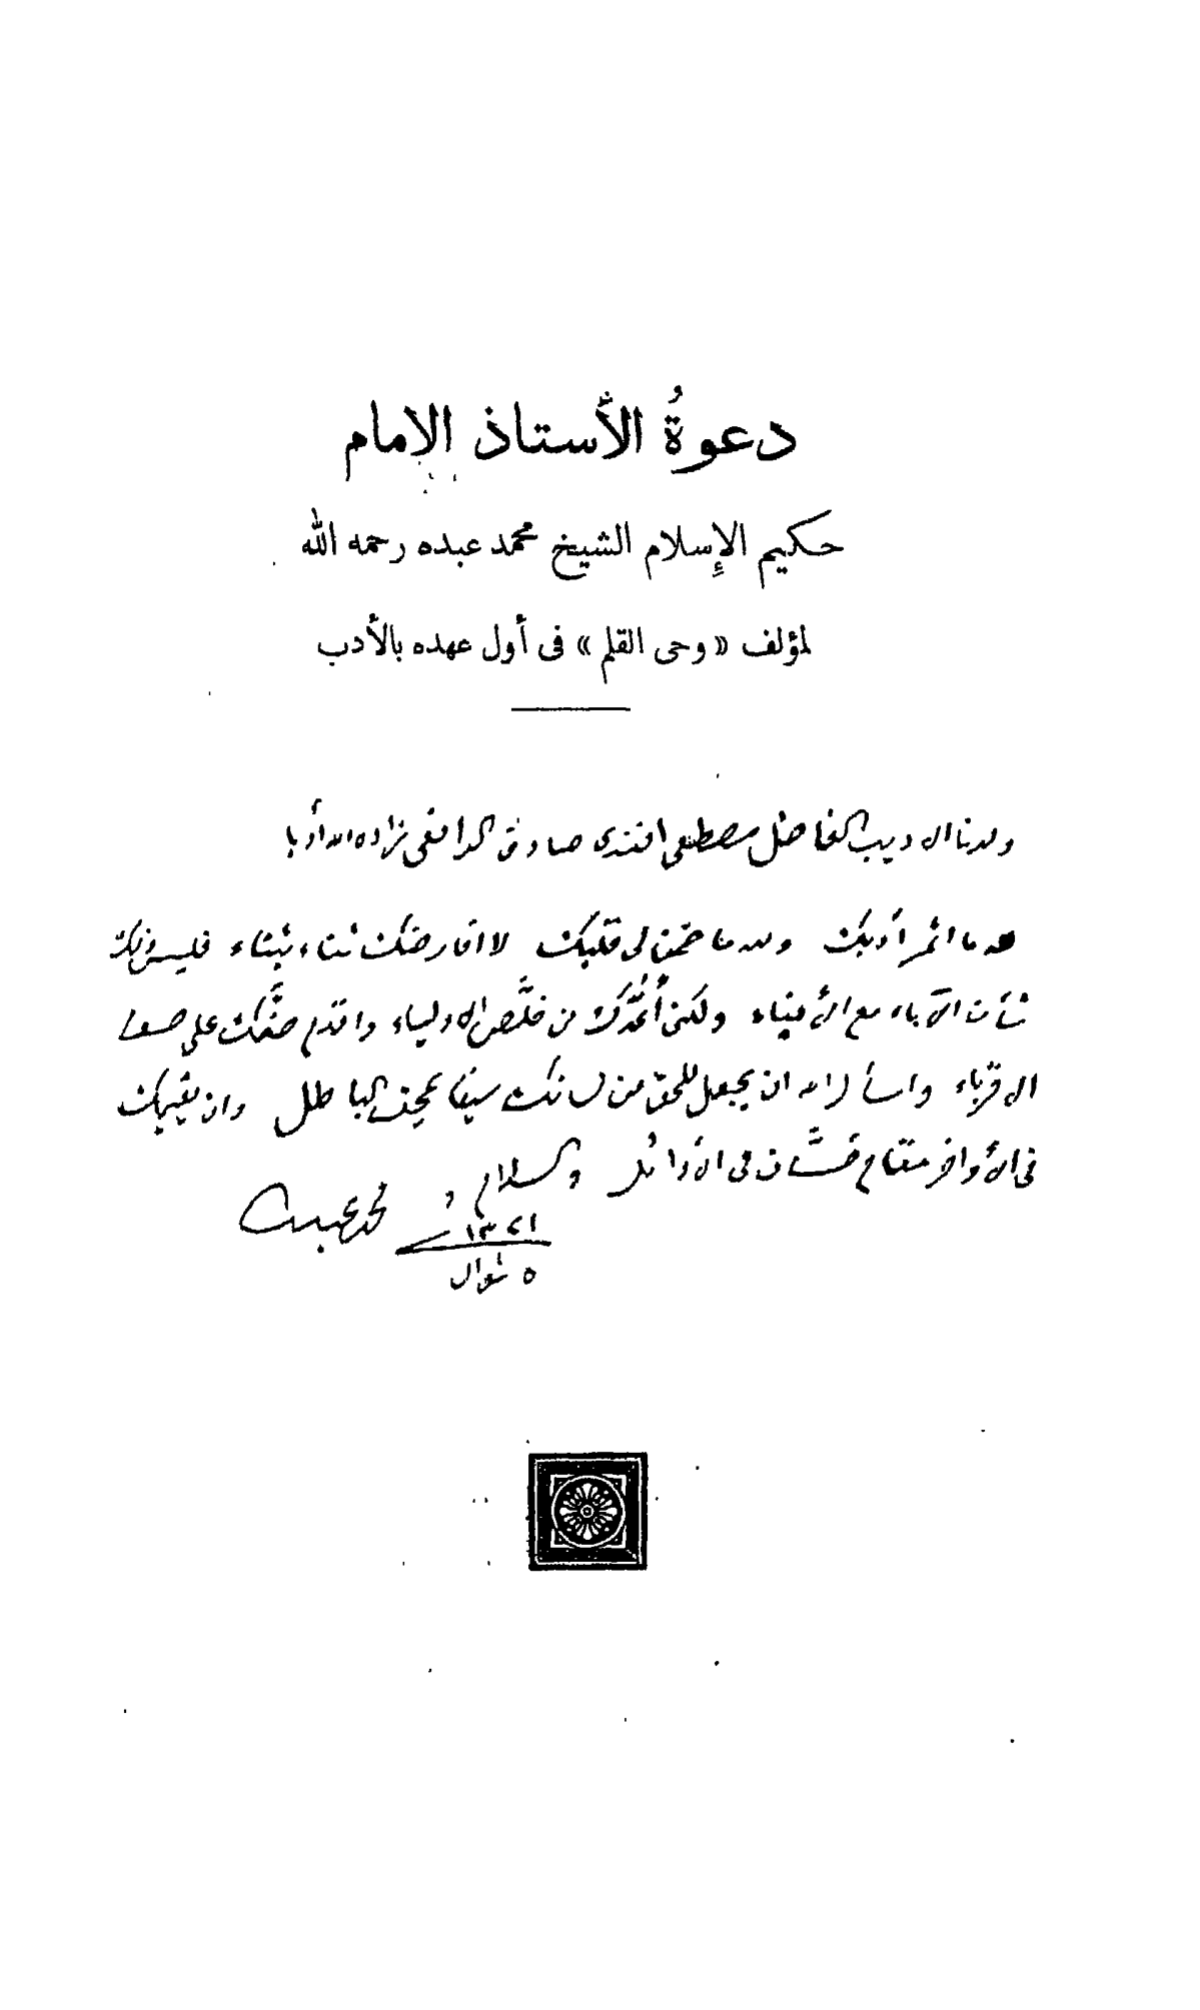 دعوةُ الأستاذ الامام
حكيم الإسلام الشيخ محمد عبده رحمه الله
لمؤلف « وحى القلم » فى أول عهده بالأدب
ولدنا الاديب الفاضل مصطفى افندى صادق الرافعى زاده الله أدبا
لله ما اثمر أدبك ولله ما ضمن لى قلبك لا اقارضك ثناء بثناء فليس ذلك
شأن الآباء مع الأبناء ولكنى أعُدّك من خلَّص الاولياء واقدم صفَّك على صف
الاقرباء واسأل الله ان يجعل للحق من لسانك سيفا يمحق الباطل وان يقيمك
فى الأواخر مقام حسَّان فى الأوائل والسلام
محمد عبده
١٣٢١
٥ شوال